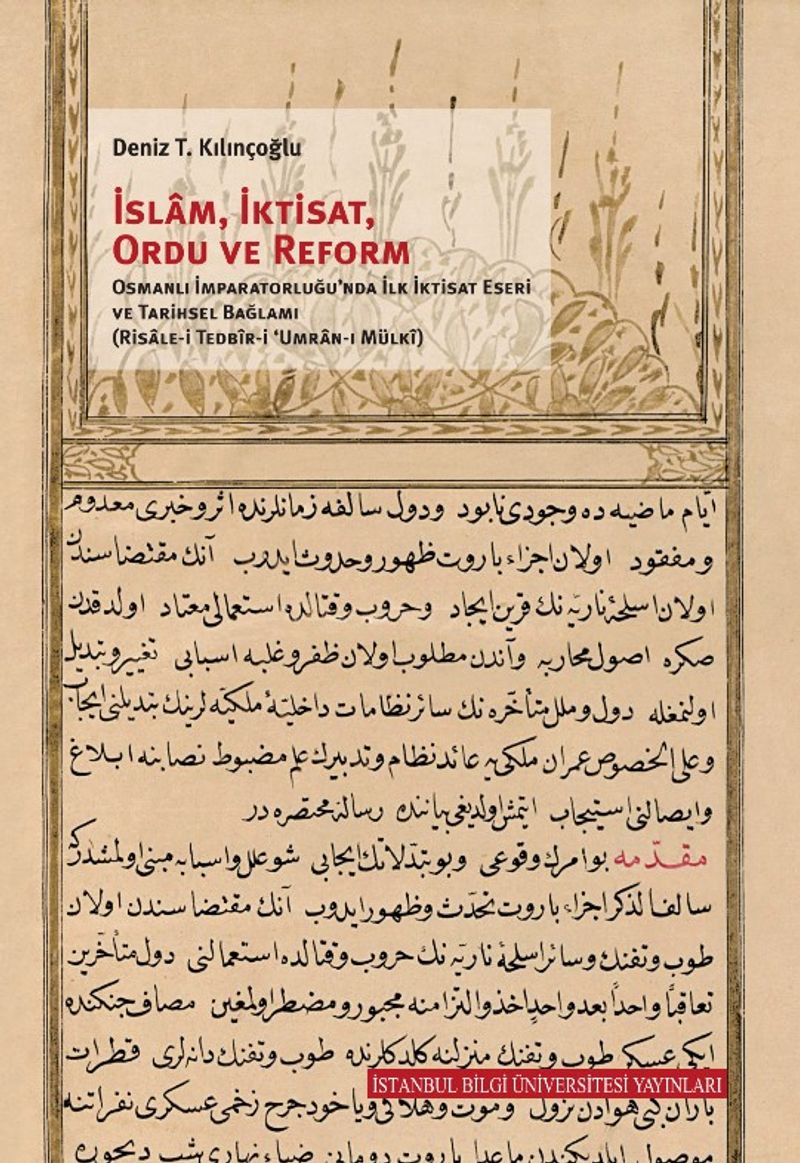 Deniz T. Kılınçoğlu
İSLÂM, İKTİSAT,
ORDU VE REFORM
OSMANLI İMPARATORLUĞU'NDA İLK İKTİSAT ESERİ
VE TARİHSEL BAĞLAMI
(RİSÂLE-İ TEDBÎR-İ ‘UMRÂN-I MÜLKÎ)
ایّام ماضیه ده وجودی نابود ودول سالفه زمانلرنده اثر وخبری معدوم
ومفقود اولان اجزاء باروت ظهور وحدوث ایدوب آنك مقتضاسندن
اولان اسلحۀ ناریّه نك قرین ایجاد وحروب وقتالده استعمالی معتاد اولدقدن
صکره اصول محاربه وآندن مطلوب اولان ظفر وغلبه اسبابی تغییر وتبدیل
اولنمغله دول وملل متأخّره نك سائر نظامات داخلیّۀ ملکیّه لرینك تبدیلنی ایجاب
وعلی الخصوص عمران ملکی یه عائد نظام وتدبیرك علم مضبوط نصابنه ابلاغ
وایصالنی استیجاب ایتمش اولدیغی بیاننده رسالۀ مختصره در
مقدّمه بو امرك وقوعی وبو تبدّلاتك ایجابی شو علل واسبابه مبنی اولمشدركه
سالف الذکر اجزاء باروت تحدّث وظهور ایدوب آنك مقتضاسندن اولان
طوب وتفنك وسائر اسلحۀ ناریّه نك حروب وقتالده استعمالنی دول متأخّرین
تعاقباً واحداً بعد واحدٍ اخذ والتزامنه مجبور ومضطر اولمغین مصاف جنكنده
ایکی عسکر طوب وتفنك منزلنه کلدکلرنده طوب وتفنك دانه لری قطرات
باران کبی هوادن نزول وموت وهلاکی ویاخود جرح زخمی عسکری نفراتنه
موصول
İSTANBUL BİLGİ ÜNİVERSİTESİ YAYINLARI